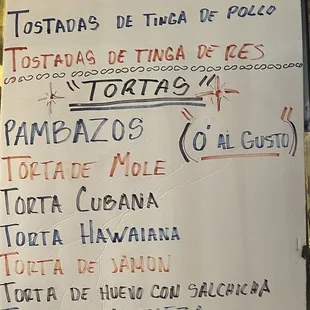 TOSTADAS DE TINGA DE POLLO
TOSTADAS DE TINGA DE RES
"TORTAS"
PAMBAZOS
(O' AL GUSTO")
TORTA DE MOLE
TORTA CUBANA
TORTA HAWAIANA
TORTA DE JAMON
TORTA DE HUEVO CON SALCHICHA